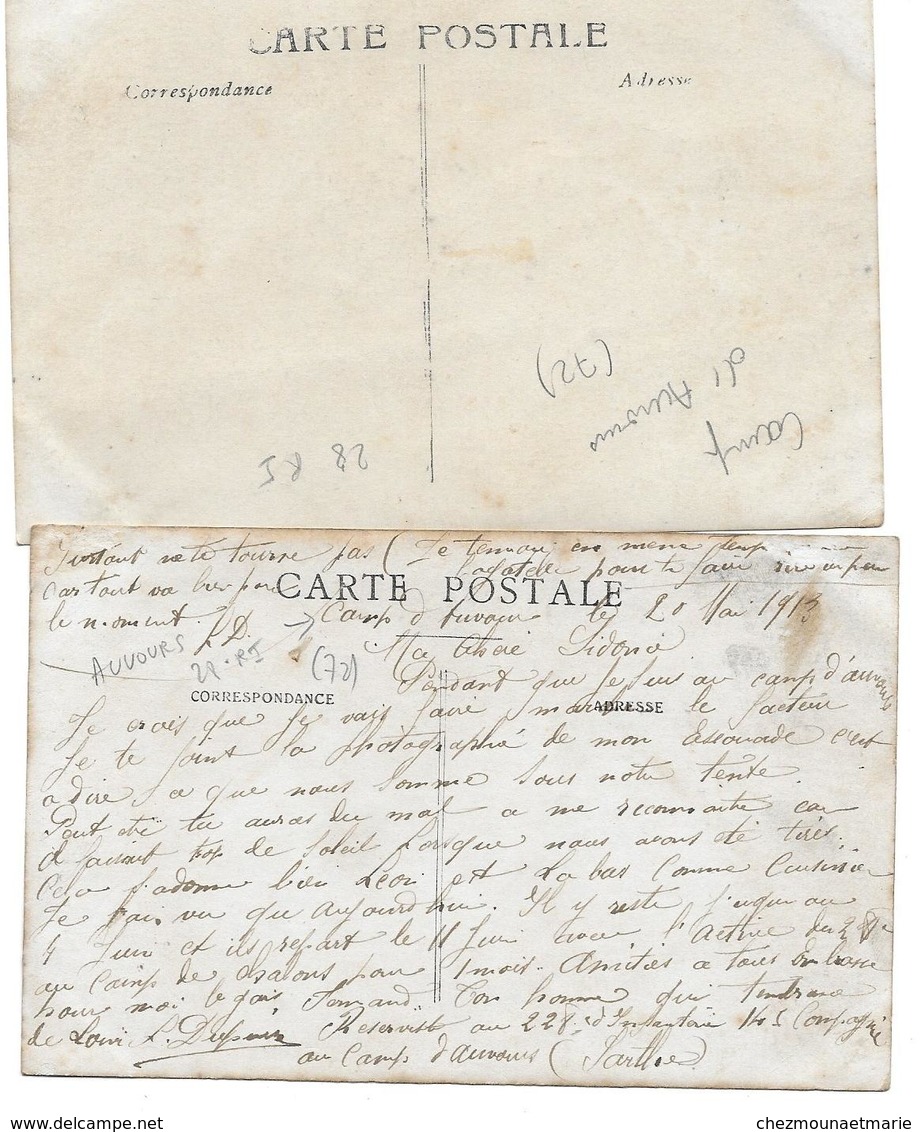 CARTE POSTALE
Correspondance
Adresse
Camp
d'Auvours
(72)
28 RI
Surtout ne te tourne pas (Je
car tout va bien pour
le moment. L D.
pour te faire rire un peu
CARTE POSTALE
Camp d'Auvours le 20 Mai 1913
AUVOURS
28. RI
(72)
Ma Cherie Sidonie
CORRESPONDANCE
ADRESSE
Pendant que Je suis au camp d'auvours
Je crois que Je vais faire marcher le facteur
Je te Joint la photographie de mon Escouade c'est
a dire a que nous Somme Sous notre tente
Peut etre tu auras du mal a me reconnaitre car
il faisait trop de Soleil Lorsque nous avons été tirés.
Cela s'adonne bien Leon est La bas Comme Cuisinier
Je l'ai vu que aujourd'hui. Il y reste jusqu au
4 Juin et ils repart le 11 Juin avec l'Active du 28e
au Camp de Chalons pour 1 mois. Amitiés a tous Embrasse
pour moi le gars Fernand. Ton homme qui
de Loin L. Reserviste au 228e d'Infanterie Compagnie
au Camp d'auvours (Sarthe)
chezmounaetmarie